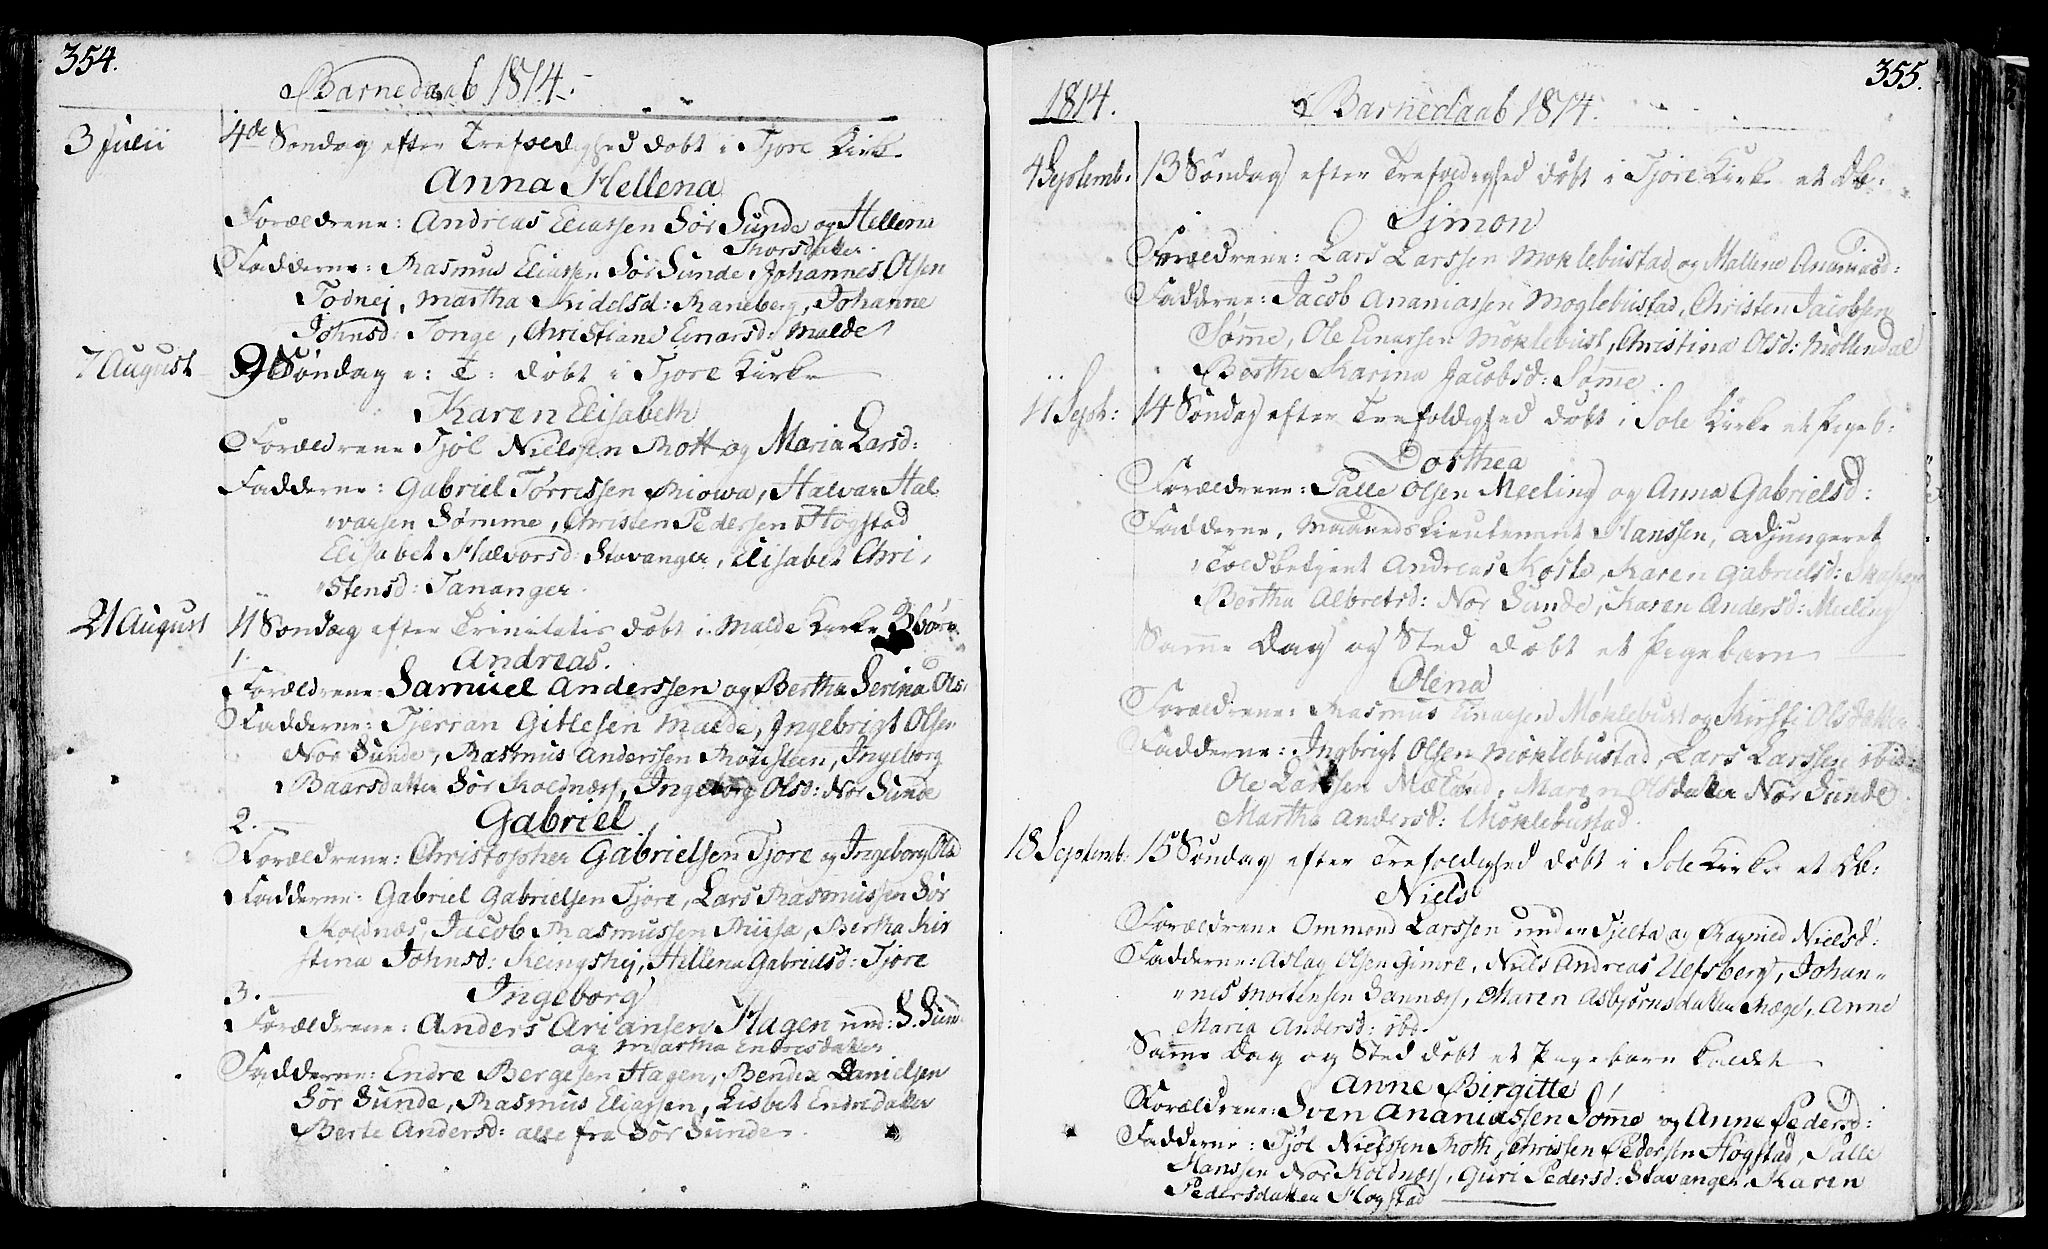 354.
Barnedaab 1814.
3 Julii 4de Søndag efter Trefoldighed døbt i Tjore Kirke
Anna Hellena
Forældrene: Andreas Eliassen Sør Sunde og Hellena
Thorsdatter.
Fadderne: Rasmus Eliassen Sør Sunde, Johannes Olsen
Todnej, Martha Kidelsd: Raneberg, Johanne
Johnsd: Tonge, Christiane Einarsd: Malde
7 August 9 Søndag e: T: døbt i Tjore Kirke
Karen Elisabeth
Forældrene Tjøl Nielssen Rott og Maria Larsd:
Fadderne: Gabriel Tørrissen Risowa, Halvar Hal-
varsen Sømme, Christen Pedersen Hogstad
Elisabet Halvorsd: Stavanger, Elisabet Chri-
stensd: Tananger.
21 August 11 Søndag efter Trinitatis døbt i Malde Kirke 3 børn
1. Andreas.
Forældrene: Samuel Anderssen og Bertha Serina Ols:
Fadderne: Tjerran Gitlesen Malde, Ingebrigt Olsen
Nor Sunde, Rasmus Anderssen Rousteen, Ingeborg
Baarsdatter Sør Koldnæs, Ingeborg Olsd: Nor Sunde
2. Gabriel
Forældrene: Christopher Gabrielsen Tjore og Ingeborg Olsd
Fadderne: Gabriel Gabrielsen Tjore, Lars Rasmussen Sør
Kolnæs, Jacob Rasmussen Riisa, Bertha Kir
stina Johnsd: Reingshej, Hellena Gabrielsd: Tjore
3. Ingeborg
Forældrene: Anders Ariansen Hagen und: S. Sun-
og Martha Endresdatter
Fadderne: Endre Bergesen Hagen, Bendix Danielsen
Sør Sunde, Rasmus Eliassen, Lisbet Endredatter
Berte Andersd: alle fra Sør Sunde.
355.
1814. Barnedaab 1814.
4 Septemb: 13 Søndag efter Trefoldighed døbt i Tjore Kirke et Db:
Simon
Forældrene: Lars Larssen Moklebustad og Mallena Ananiasd:
Fadderne: Jacob Ananiassen Moglebustad, Christen Jacobsen
Sømme, Ole Einarsen Møklebust, Christina Olsd: Møllendal
Berthe Karina Jacobsd: Sømme.
11 Sept: 14 Søndag efter Trefoldighed døbt i Sole Kirke et Pigeb:
Dorthea
Forældrene: Salle Olsen Meeling og Anna Gabrielsd:
Fadderne, Maaneds Lieutenant Hanssen, adjungeret
Toldbetjent Andreas Koste, Karen Gabrielsd:
Bertha Albretsd: Nor Sunde, Karen Andersd: Meeling
Samme Dag og Sted døbt et Pigebarn
Olena
Forældrene: Rasmus Einarsen Møklebust og Kirsti Olsdatter
Fadderne: Ingbrigt Olsen Møklebustad, Lars Larssen ibid:
Ole Larssen Mæland, Maren Olsdatter Nor Sunde.
Martha Andersd: Møklebustad.
18 Septemb: 15 Søndag efter Trefoldighed døbt i Sole Kirke et Db:
Niels
Forældrene Ommond Larssen under Tjelta og Ragnild Nielsd:
Fadderne: Aslag Olsen Gimre, Niels Andreas Ulfsberg, Johan-
nes Mortensen Sannæss, Maren Asbjørnsdatter Mæge, Anne
Maria Andersd: ibd.
Samme Dag og Sted døbt et Pigebarn kaldet
Anne Birgitte
Forældrene: Sven Ananiassen Sømme og Anne Pedersd:
Fadderne: Tjøl Nielssen Roth, Christen Pedersen Hogstad, Salle
Hanssen Nor Koldnæss, Guri Pedersd: Stavanger, Karen
Pedersdatter Hogstad